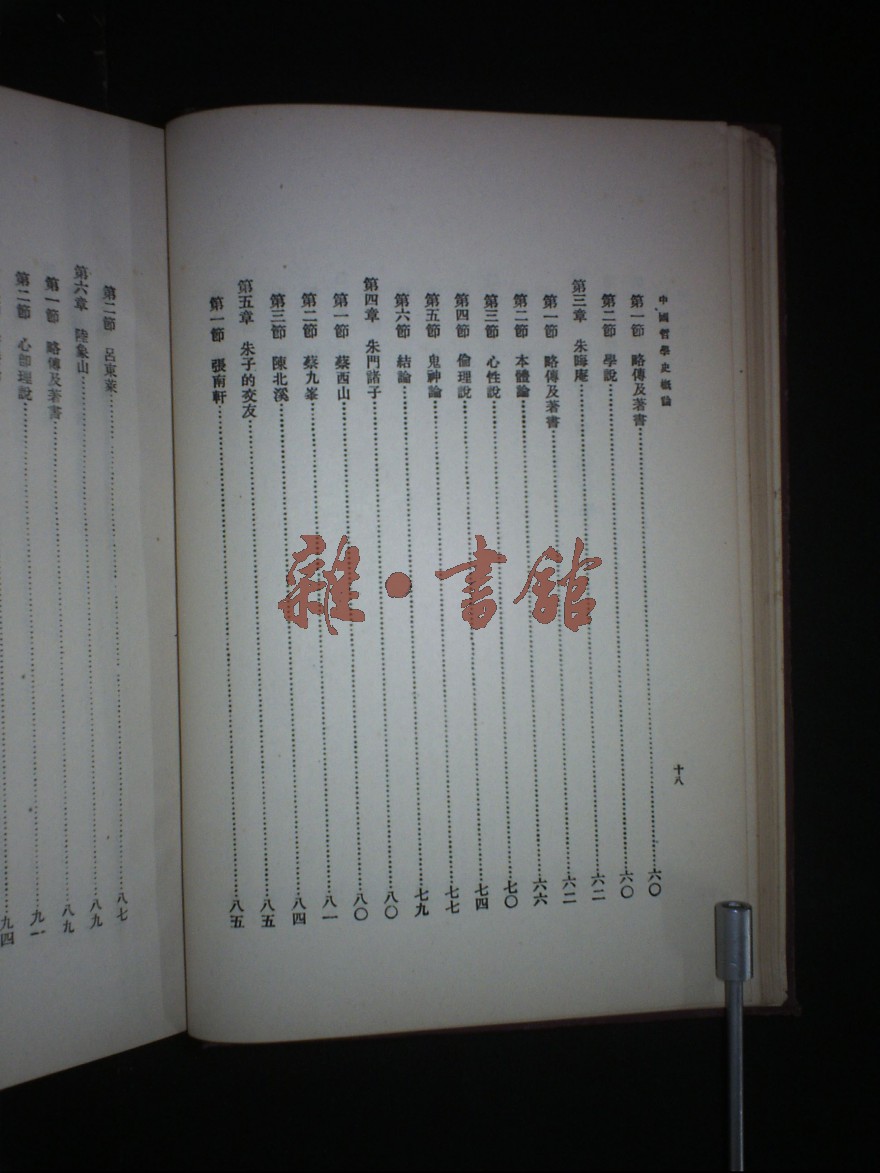 中國哲學史概論
第一節 略傳及著書……六〇
第二節 學說……六〇
第三章 朱晦庵……六二
第一節 略傳及著書……六二
第二節 本體論……六六
第三節 心性說……七〇
第四節 倫理說……七四
第五節 鬼神論……七七
第六節 結論……七九
第四章 朱門諸子……八〇
第一節 蔡西山……八〇
第二節 蔡九峯……八一
第三節 陳北溪……八四
第五章 朱子的交友……八五
第一節 張南軒……八五
十八
第二節 呂東萊……八七
第六章 陸象山……八九
第一節 略傳及著書……八九
第二節 心卽理說……九一
九四
雜·書館